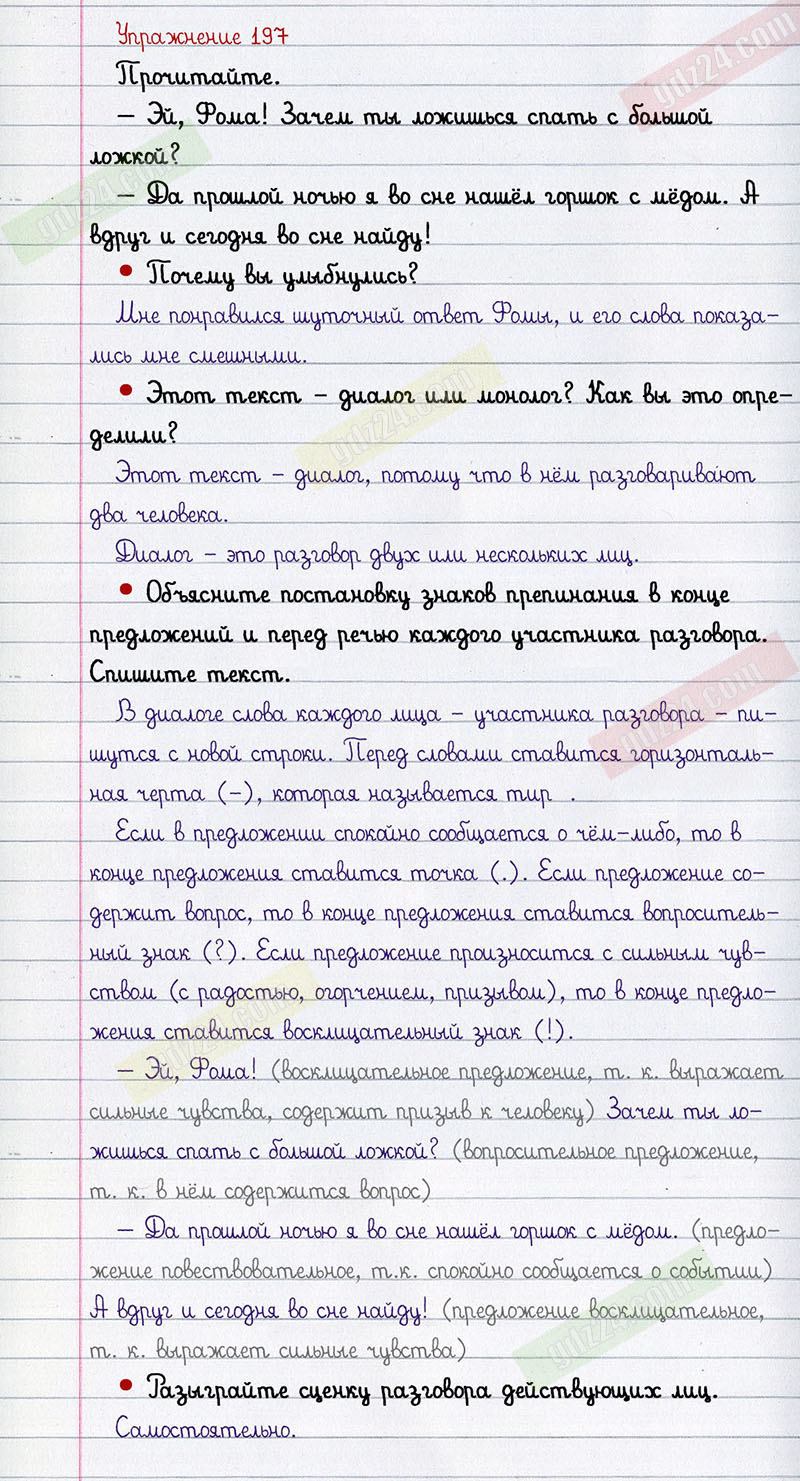 Упражнение 197
Прочитайте.
– Эй, Рома! Зачем ты ложишься спать с большой
ложкой?
– Да прошлой ночью я во сне нашёл горшок с мёдом. А
вдруг и сегодня во сне найду!
• Почему вы улыбнулись?
Мне понравился шуточный ответ Ромы, и его слова показа-
лись мне смешными.
• Этот текст – диалог или монолог? Как вы это опре-
делили?
Этот текст – диалог, потому что в нём разговаривают
два человека.
Диалог – это разговор двух или нескольких лиц.
• Объясните постановку знаков препинания в конце
предложений и перед речью каждого участника разговора.
Спишите текст.
В диалоге слова каждого лица – участника разговора – пи-
шутся с новой строки. Перед словами ставится горизонталь-
ная черта (–), которая называется тир .
Если в предложении спокойно сообщается о чём-либо, то в
конце предложения ставится точка (.). Если предложение со-
держит вопрос, то в конце предложения ставится вопроситель-
ный знак (?). Если предложение произносится с сильным чув-
ством (с радостью, огорчением, призывом), то в конце предло-
жения ставится восклицательный знак (!).
– Эй, Рома! (восклицательное предложение, т. к. выражает
сильные чувства, содержит призыв к человеку) Зачем ты ло-
жишься спать с большой ложкой? (вопросительное предложение,
т. к. в нём содержится вопрос)
– Да прошлой ночью я во сне нашёл горшок с мёдом. (предло-
жение повествовательное, т.к. спокойно сообщается о событии)
А вдруг и сегодня во сне найду! (предложение восклицательное,
т. к. выражает сильные чувства)
• Разыграйте сценку разговора действующих лиц.
Самостоятельно.
gdz24.com
gdz24.com
gdz24.com
gdz24.com
gdz24.com
gdz24.com